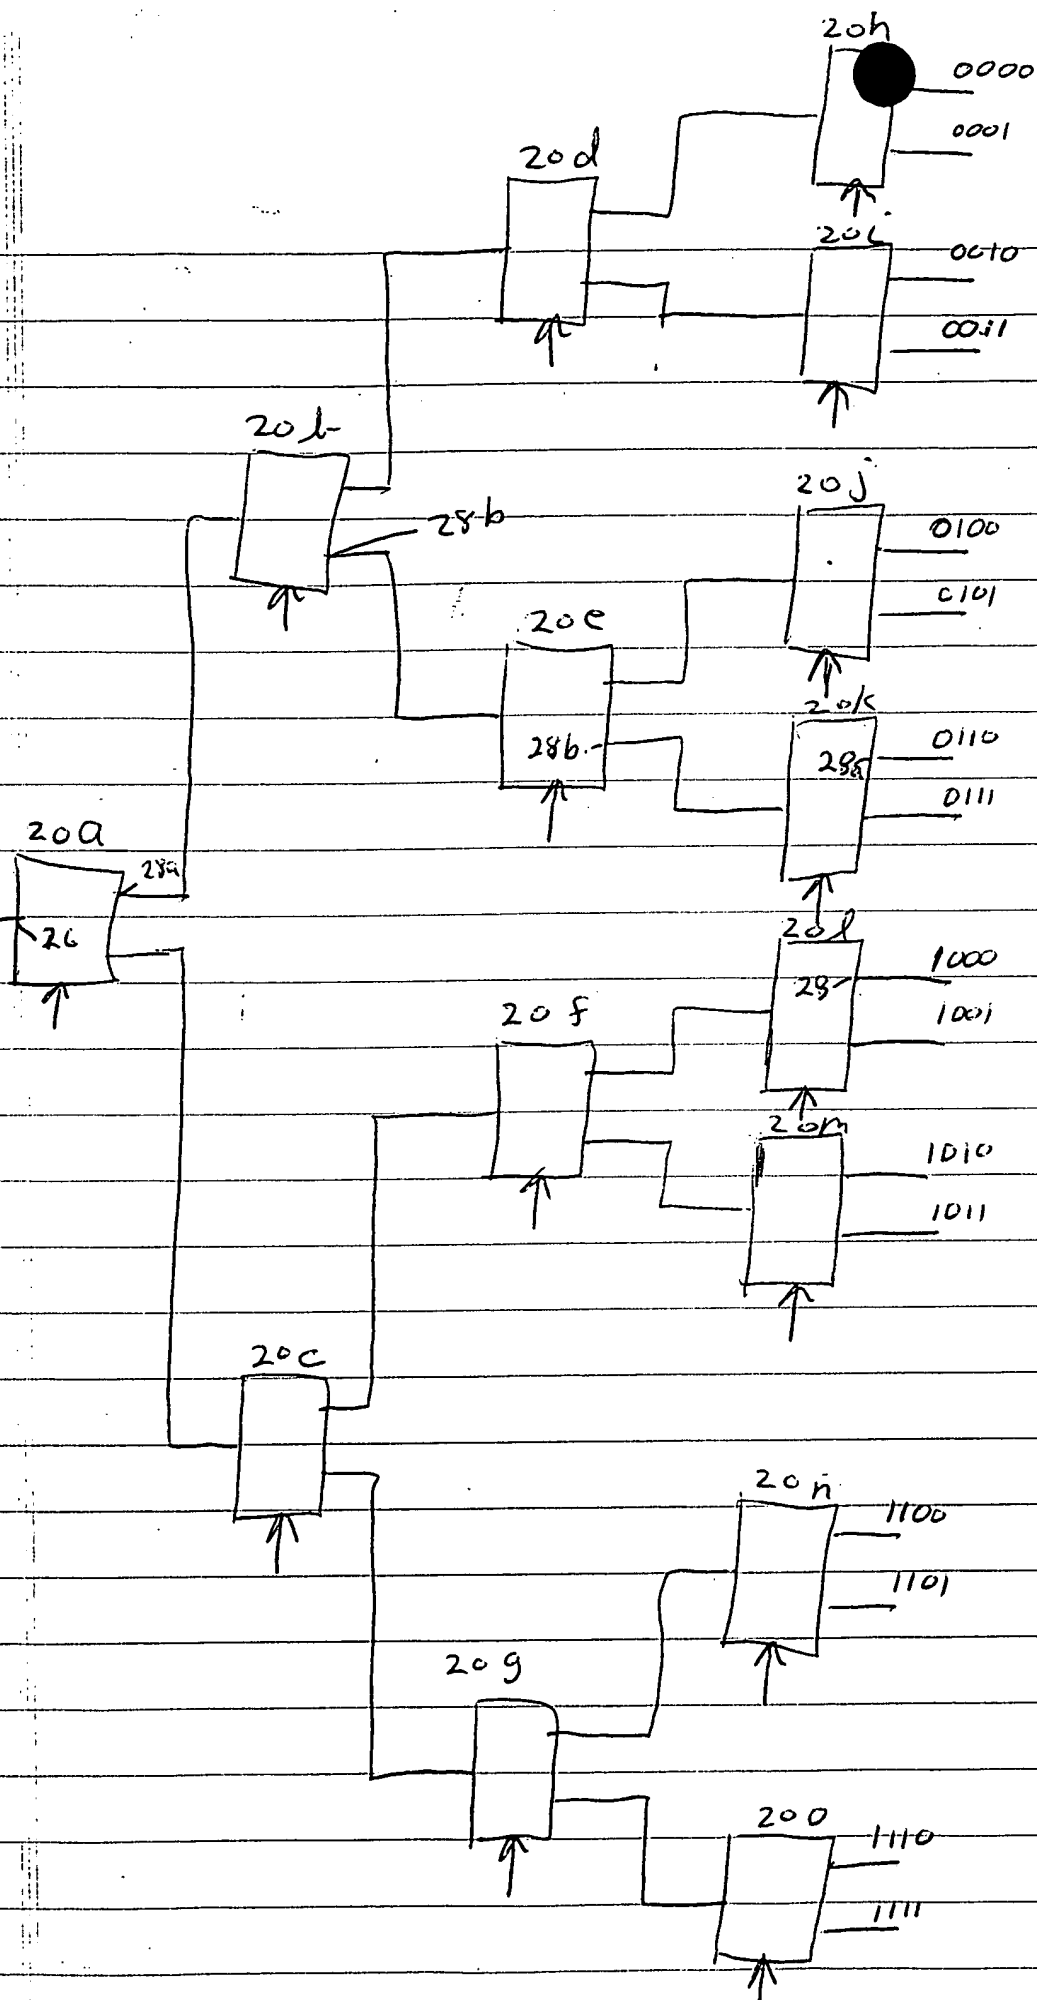 20h
0000
0001
20d
20i
0010
0011
20b
28b
20j
0100
0101
20e
20k
28b
0110
28a
0111
20a
28a
26
20l
1000
28
1001
20f
20m
1010
1011
20c
20n
1100
1101
20g
20o
1110
1111